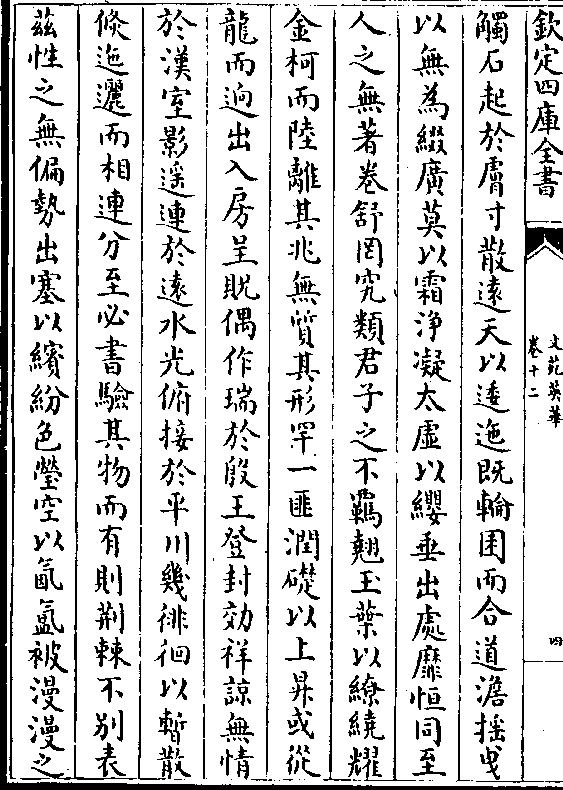 欽定四庫全書
文苑英華
卷十二
四
觸石起於膚寸散遠天以逶迤既輪囷而合道澹摇曵
以無為綴廣莫以霜淨凝太虛以纓垂出處靡恒同至
人之無著卷舒罔究類君子之不羈翹玉葉以繚繞耀
金柯而陸離其兆無質其形罕一匪潤礎以上昇或從
龍而逈出入房呈貺偶作瑞於殷王登封効祥諒無情
於漢室影遥連於遠水光俯接於平川幾徘徊以暫散
倐迤邐而相連分至必書驗其物而有則荆棘不别表
茲性之無偏勢出塞以繽紛色瑩空以氤氲被漫漫之